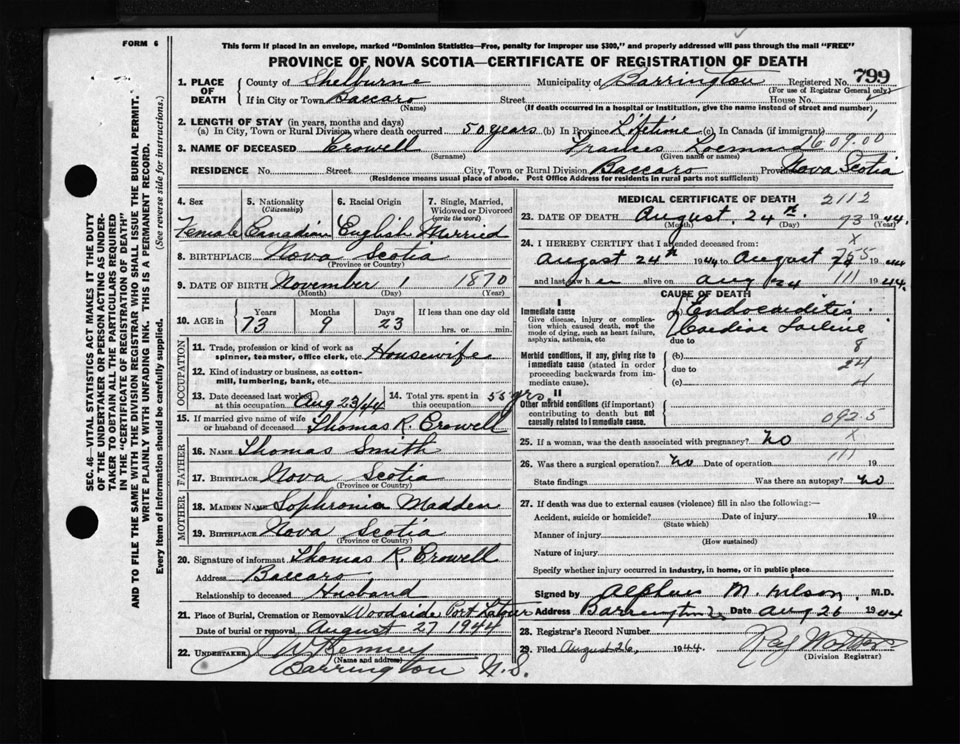 FORM 6
This form if placed in an envelope, marked "Dominion Statistics—Free, penalty for improper use $300," and properly addressed will pass through the mail "FREE"
PROVINCE OF NOVA SCOTIA—CERTIFICATE OF REGISTRATION OF DEATH
799
1. PLACE OF DEATH County of Shelburne Municipality of Barrington Registered No.
(For use of Registrar General only)
If in City or Town Baccaro Street House No.
(Name) (If death occurred in a hospital or institution, give the name instead of street and number)
2. LENGTH OF STAY (in years, months and days)
(a) In City, Town or Rural Division, where death occurred 50 years (b) In Province Lifetime (c) In Canada (if immigrant)
3. NAME OF DECEASED Crowell Frances 1609.00
(Surname) (Given name or names)
RESIDENCE No. Street City, Town or Rural Division Baccaro Province Nova Scotia
(Residence means usual place of abode. Post Office Address for residents in rural parts not sufficient)
4. Sex 5. Nationality (Citizenship) 6. Racial Origin 7. Single, Married, Widowed or Divorced (write the word)
Female Canadian English Married
8. BIRTHPLACE Nova Scotia
(Province or Country)
9. DATE OF BIRTH November 1 1870
(Month) (Day) (Year)
10. AGE in Years Months Days If less than one day old
73 9 23 hrs. or min.
OCCUPATION
11. Trade, profession or kind of work as spinner, teamster, office clerk, etc. Housewife
12. Kind of industry or business, as cotton-mill, lumbering, bank, etc.
13. Date deceased last worked at this occupation Aug 23/44 14. Total yrs. spent in this occupation 55 yrs
15. If married give name of wife or husband of deceased Thomas R. Crowell
FATHER
16. NAME Thomas Smith
17. BIRTHPLACE Nova Scotia
(Province or Country)
MOTHER
18. MAIDEN NAME Sophronia Madden
19. BIRTHPLACE Nova Scotia
(Province or Country)
20. Signature of informant Thomas R. Crowell
Address Baccaro
Relationship to deceased Husband
21. Place of Burial, Cremation or Removal Woodside Port Latour
Date of burial or removal August 27 1944
22. UNDERTAKER Kenney
(Name and address)
Barrington N.S.
MEDICAL CERTIFICATE OF DEATH 2112
23. DATE OF DEATH August 24th 73 1944
(Month) (Day) (Year)
24. I HEREBY CERTIFY that I attended deceased from: X
August 24th 1944 to August 1944
and last saw her alive on Aug 24 111 1944.
CAUSE OF DEATH
I
Immediate cause
Give disease, injury or complication which caused death, not the mode of dying, such as heart failure, asphyxia, asthenia, etc
Endocarditis
Cardiac Failure
due to
8
Morbid conditions, if any, giving rise to immediate cause (stated in order proceeding backwards from immediate cause).
(b)
24
due to
(c) 4
II
Other morbid conditions (if important) contributing to death but not causally related to immediate cause.
092.5
25. If a woman, was the death associated with pregnancy? no X
26. Was there a surgical operation? no Date of operation 111 19
State findings Was there an autopsy? no
27. If death was due to external causes (violence) fill in also the following:—
Accident, suicide or homicide? Date of injury 19
(State which)
Manner of injury
(How sustained)
Nature of injury
Specify whether injury occurred in industry, in home, or in public place
Signed by M. Wilson M.D.
Address Barrington Date Aug 26 1944
28. Registrar's Record Number
29. Filed August 26, 1944
(Division Registrar)
SEC. 46—VITAL STATISTICS ACT MAKES IT THE DUTY
OF THE UNDERTAKER OR PERSON ACTING AS UNDER-
TAKER TO OBTAIN ALL THE PARTICULARS REQUIRED
IN THE "CERTIFICATE OF REGISTRATION OF DEATH"
AND TO FILE THE SAME WITH THE DIVISION REGISTRAR WHO SHALL ISSUE THE BURIAL PERMIT.
WRITE PLAINLY WITH UNFADING INK. THIS IS A PERMANENT RECORD.
Every item of information should be carefully supplied. (See reverse side for instructions.)